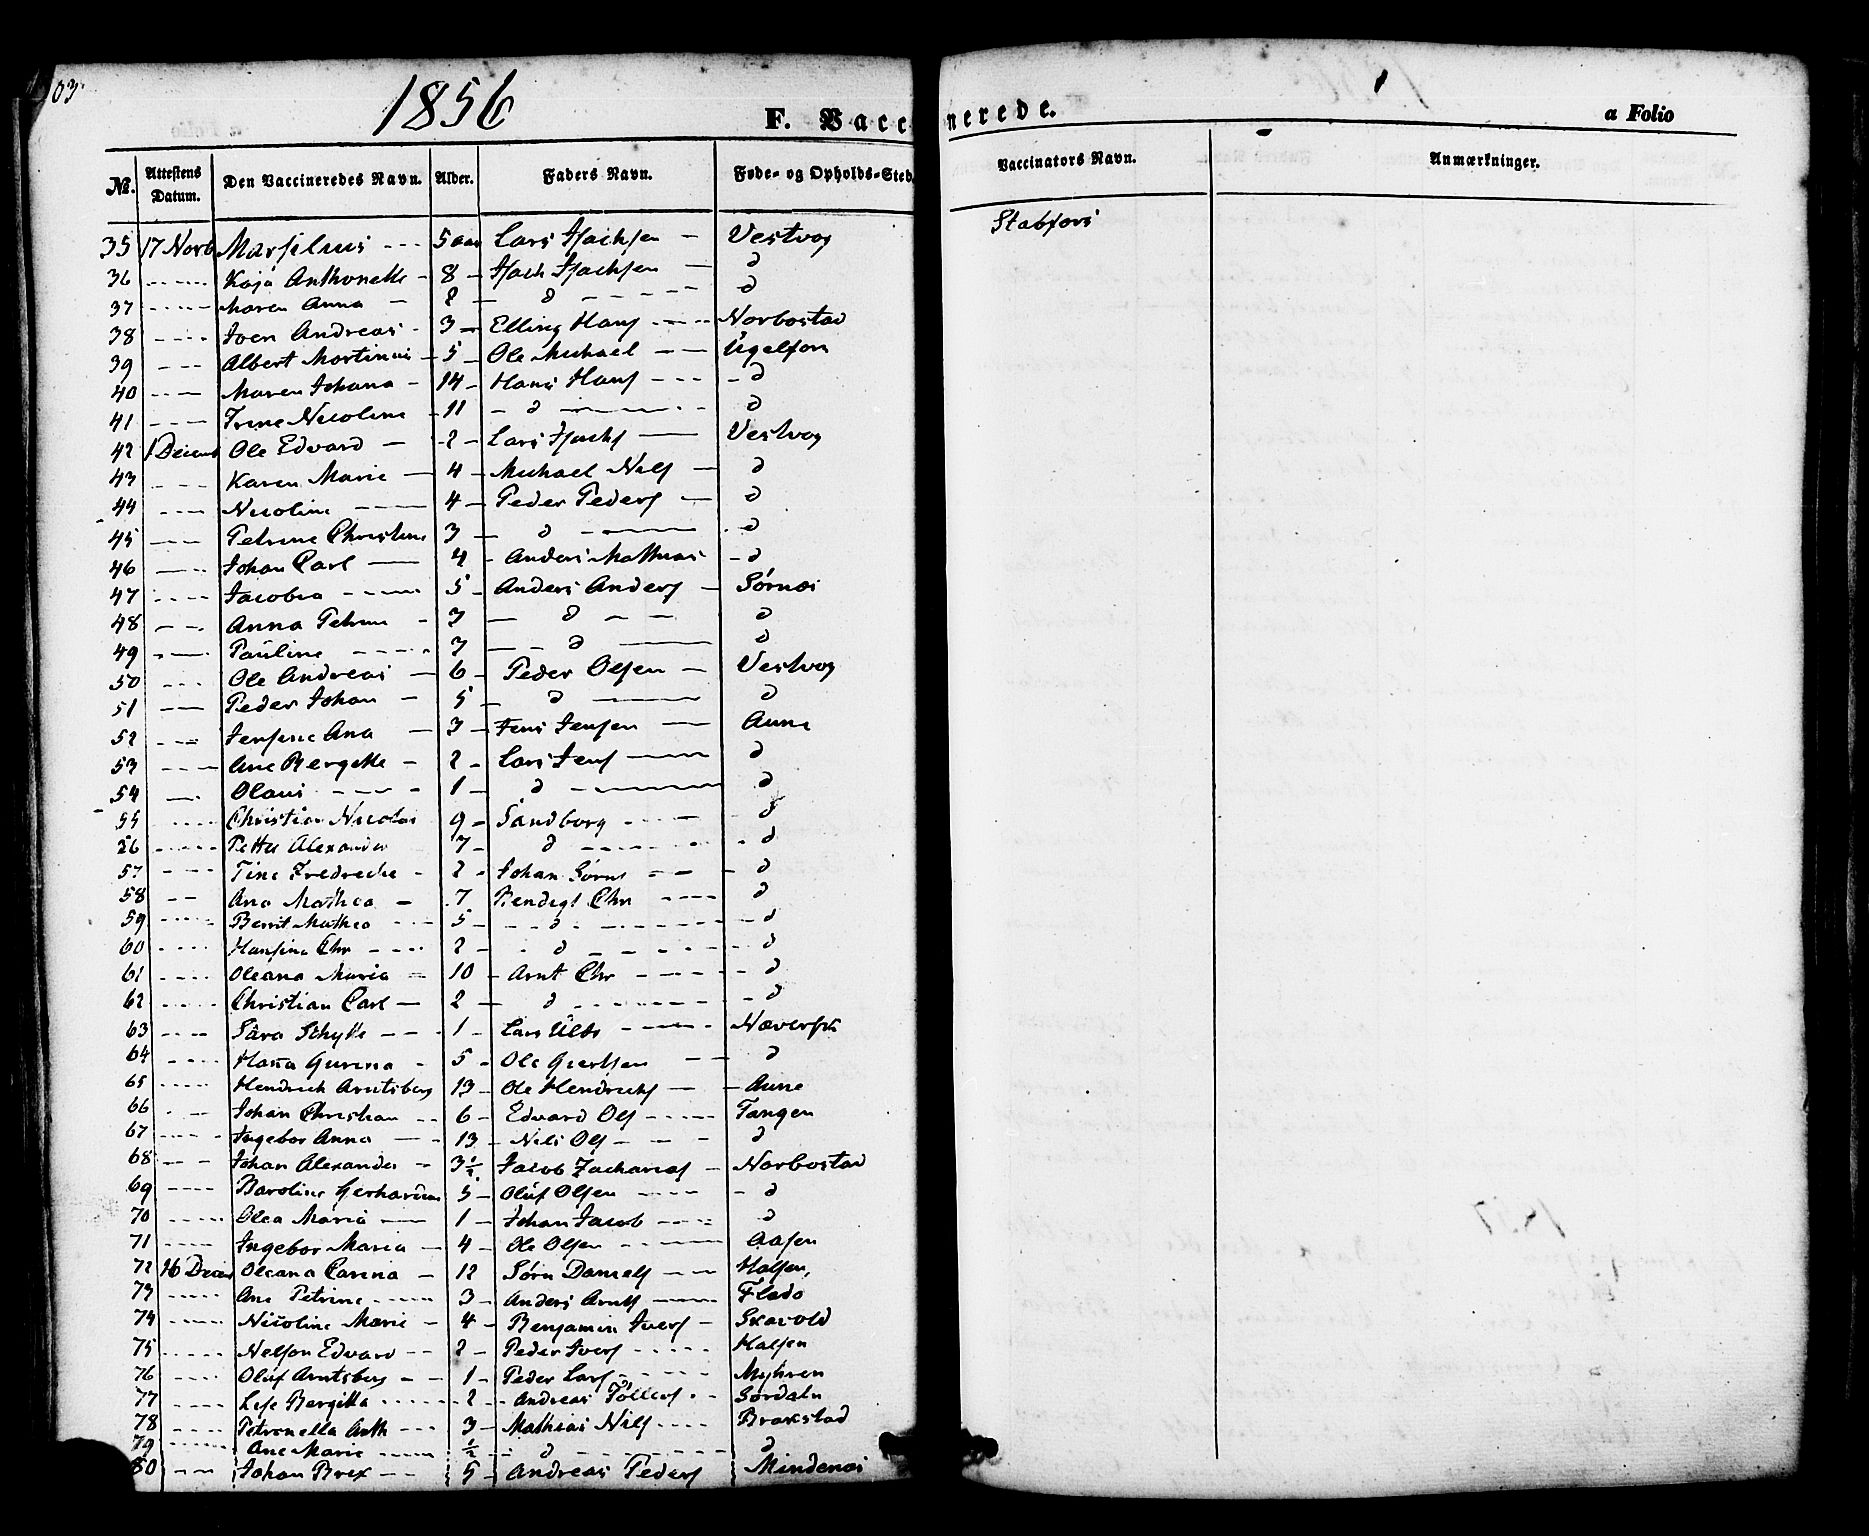 103
1856
F. Vaccinerede.
a Folio
No. | Attestens Datum. | Den Vaccineredes Navn. | Alder. | Faders Navn. | Føde- og Opholds-Sted. | Vaccinators Navn. | Anmærkninger.
35 17 Novb Marsilius - - - 5 aar Lars Isachsen — Vestvog
36 Kaja Anthonette - 8 - Isach Isachsen — d
37 Maren Anna — 8 — d - - - d
38 Joen Andreas - 3 — Elling Hans - - - Norbostad
39 Albert Martinus - 5 - Ole Michael — — Ugelfon
40 Maren Johana - 14 - Hans Hans - - - d
41 Trine Nicoline - 11 - d - - - d
42 1 Decemb Ole Edvard — 2 - Lars Isachs — Vestvog
43 Karen Marie — 4 - Michael Nils — d
44 Nicoline — 4 - Peder Peders — d
45 Petrine Christine 3 — d - - d
46 Johan Carl — 4 - Anders Mathias - d
47 Jacobia - - - 5 - Anders Anders — Sørnæs
48 Anna Petrine - 3 — d — — d
49 Pauline - - - 3 — d — d
50 Ole Andreas — 6 - Peder Olsen — Vestvog
51 Peder Johan — 5 - d - - d
52 Jensine Ana — 3 - Jens Jensen — Aune
53 Ane Bergitte - 2 - Lars Jens — d
54 Olaus - - - 1 - d - - d
55 Christian Nicolai 9 - Sandborg - - - d
56 Petter Alexander 7 - d - - - d
57 Tine Fredreche - 2 - Johan Sørns - - - d
58 Ana Mathea — 7 Bendigt Chr - - - d
59 Berrit Mathea 5 - - d - - - d
60 Hansine Chr - - - 2 - d - - - d
61 Oleana Maria - 10 - Arnt Chr - - - d
62 Christian Carl — 2 — d - - - d
63 Sara Schytte - - 1 - Lars Ulbr - - - Næversk
64 Hanna Gurina - 5 - Ole Geertsen — d
65 Hendrich Arntsberg 13 - Ole Hendrichs — Aune
66 Johan Christian - - 6 - Edvard Ols - - - Tangen
67 Ingebor Anna — 13 - Nils Ols - - - d
68 Johan Alexander - 3½ - Jacob Zacharias - Norbostad
69 Baroline Gerhardine 5 - Oluf Olsen - - - d
70 Olea Maria — 1 - Johan Jacob - - - d
71 Ingebor Maria — 4 - Ole Olsen - - - Aasen
72 16 Decem Oleana Carina — 12 Sørn Daniels — Halsen,
73 Ane Petrine - - - 3 - Anders Arnts — Flado
74 Nicoline Marie - 4 - Benjamin Ivers - Skavold
75 Nelson Edvard - - 2 - Peder Ivers - - - Halsen
76 Oluf Arntsberg - - 1 - Peder Lars - - - Myhren
77 Lise Bergitta - - - 2 - Andreas Tøllefs - - Sørdaln
78 Petronella Anth - - - 3 - Mathias Nils - - - Brakstad
79 Ane Marie - - - ½ - d - - - d
80 Johan Brex - - 5 - Andreas Peders Mindenæs
Stabfors